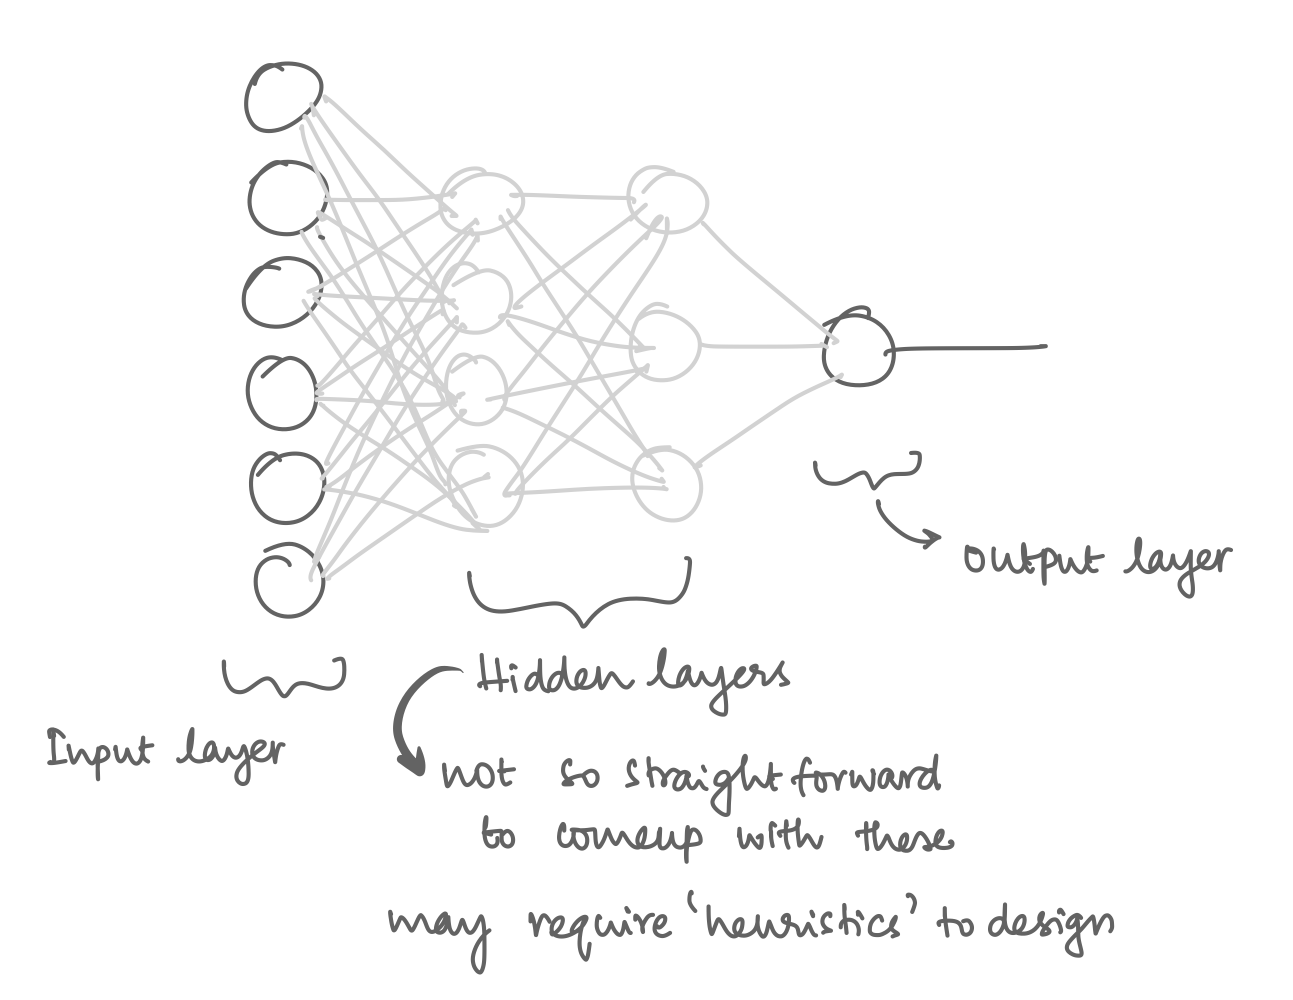 output layer
Hidden layers
Input layer
not so straight forward
to comeup with these
may require 'heuristics' to design